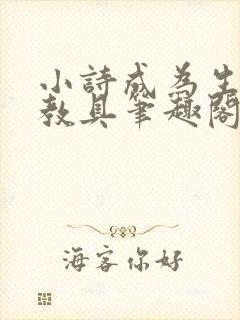 小詩成為生
教具筆趣閣
海客你好